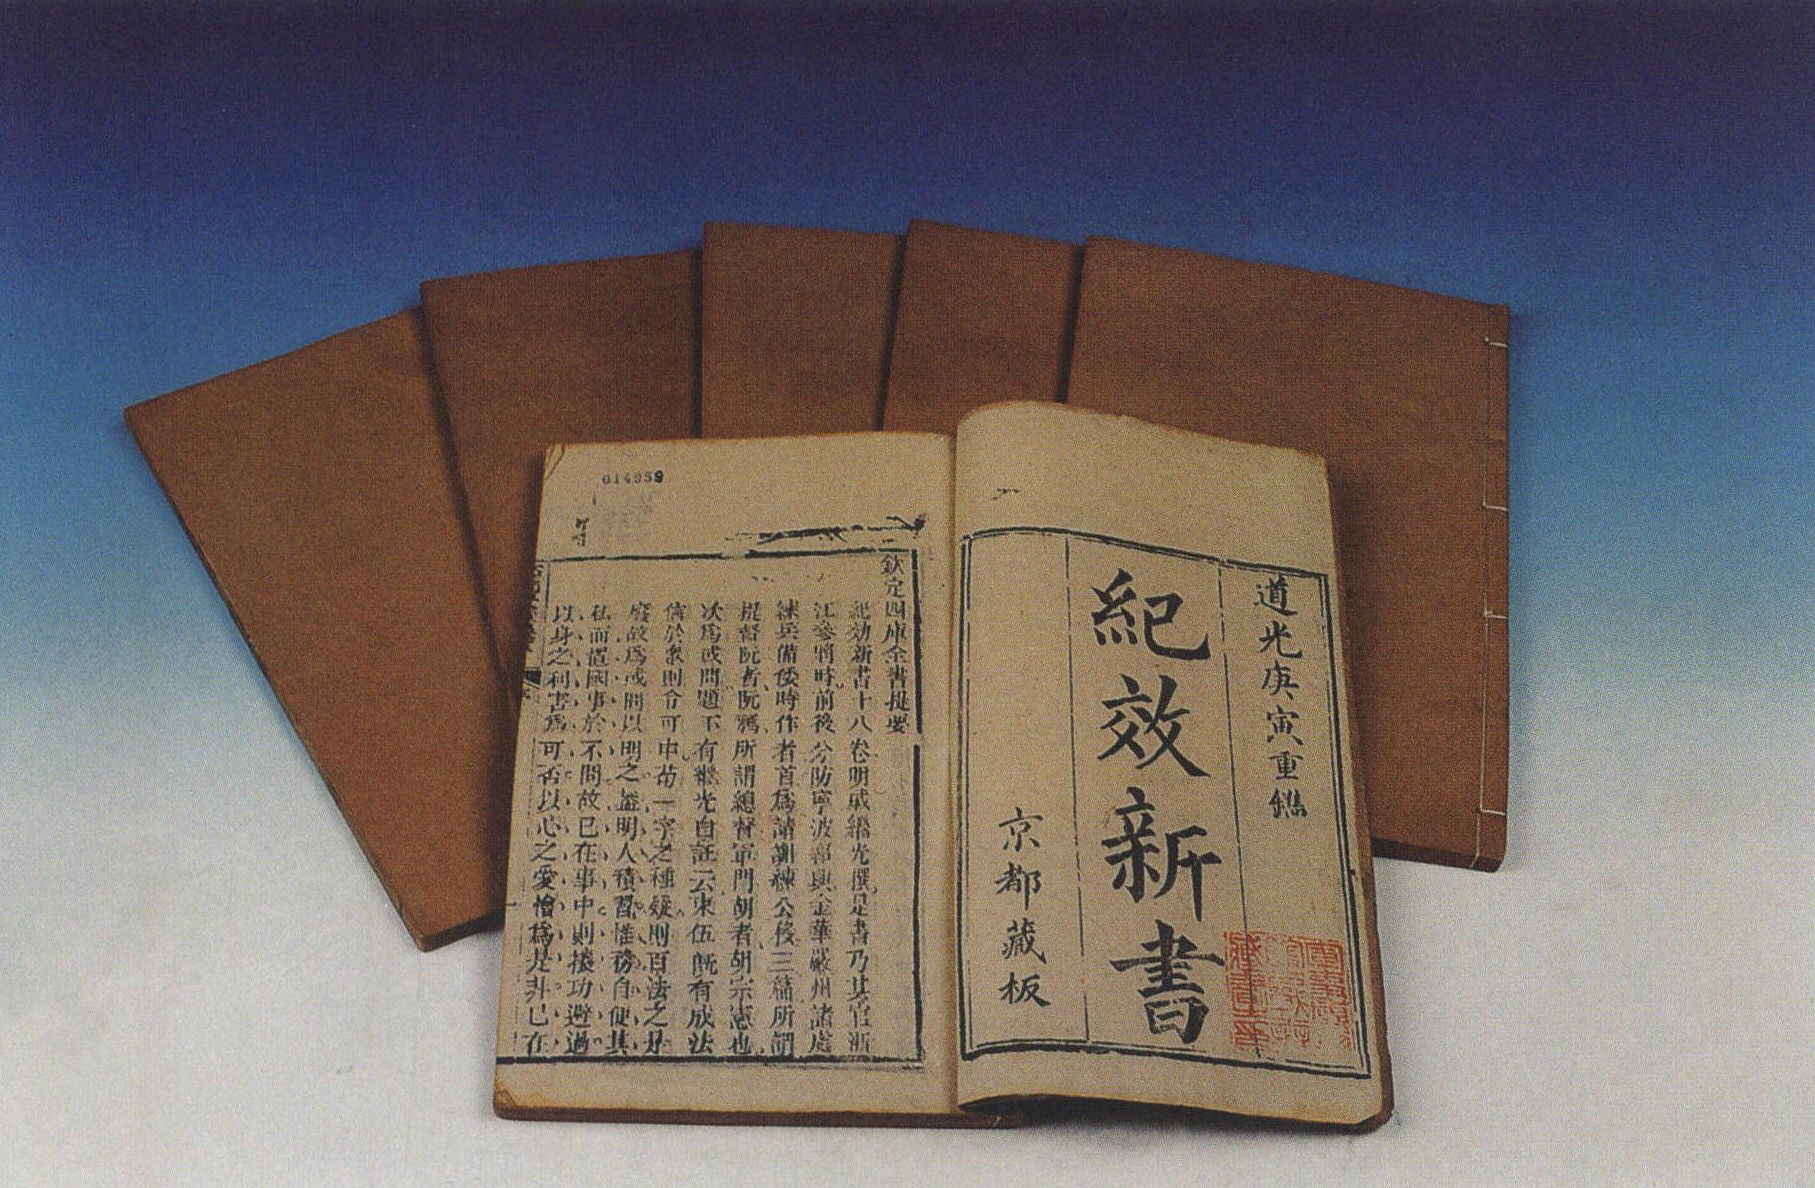 道光庚寅重鐫
紀效新書
京都藏板
014959
欽定四庫全書提要
紀効新書十八卷明戚繼光撰是書乃其官浙
江參將時前後分防寧波紹興金華嚴州諸處
練兵備倭時作者首爲請訓練公移三篇所謂
提督阮者阮鶚所謂總督軍門胡者胡宗憲也
次爲或問題下有繼光自註云束伍旣有成法
信於衆則令可申苟一字之種疑則百法之是
廢故爲或問以明之蓋明人積習惟務自便其
私而置國事於不問故已在事中則攘功避過
以身之利害爲可否以心之愛憎爲是非已在